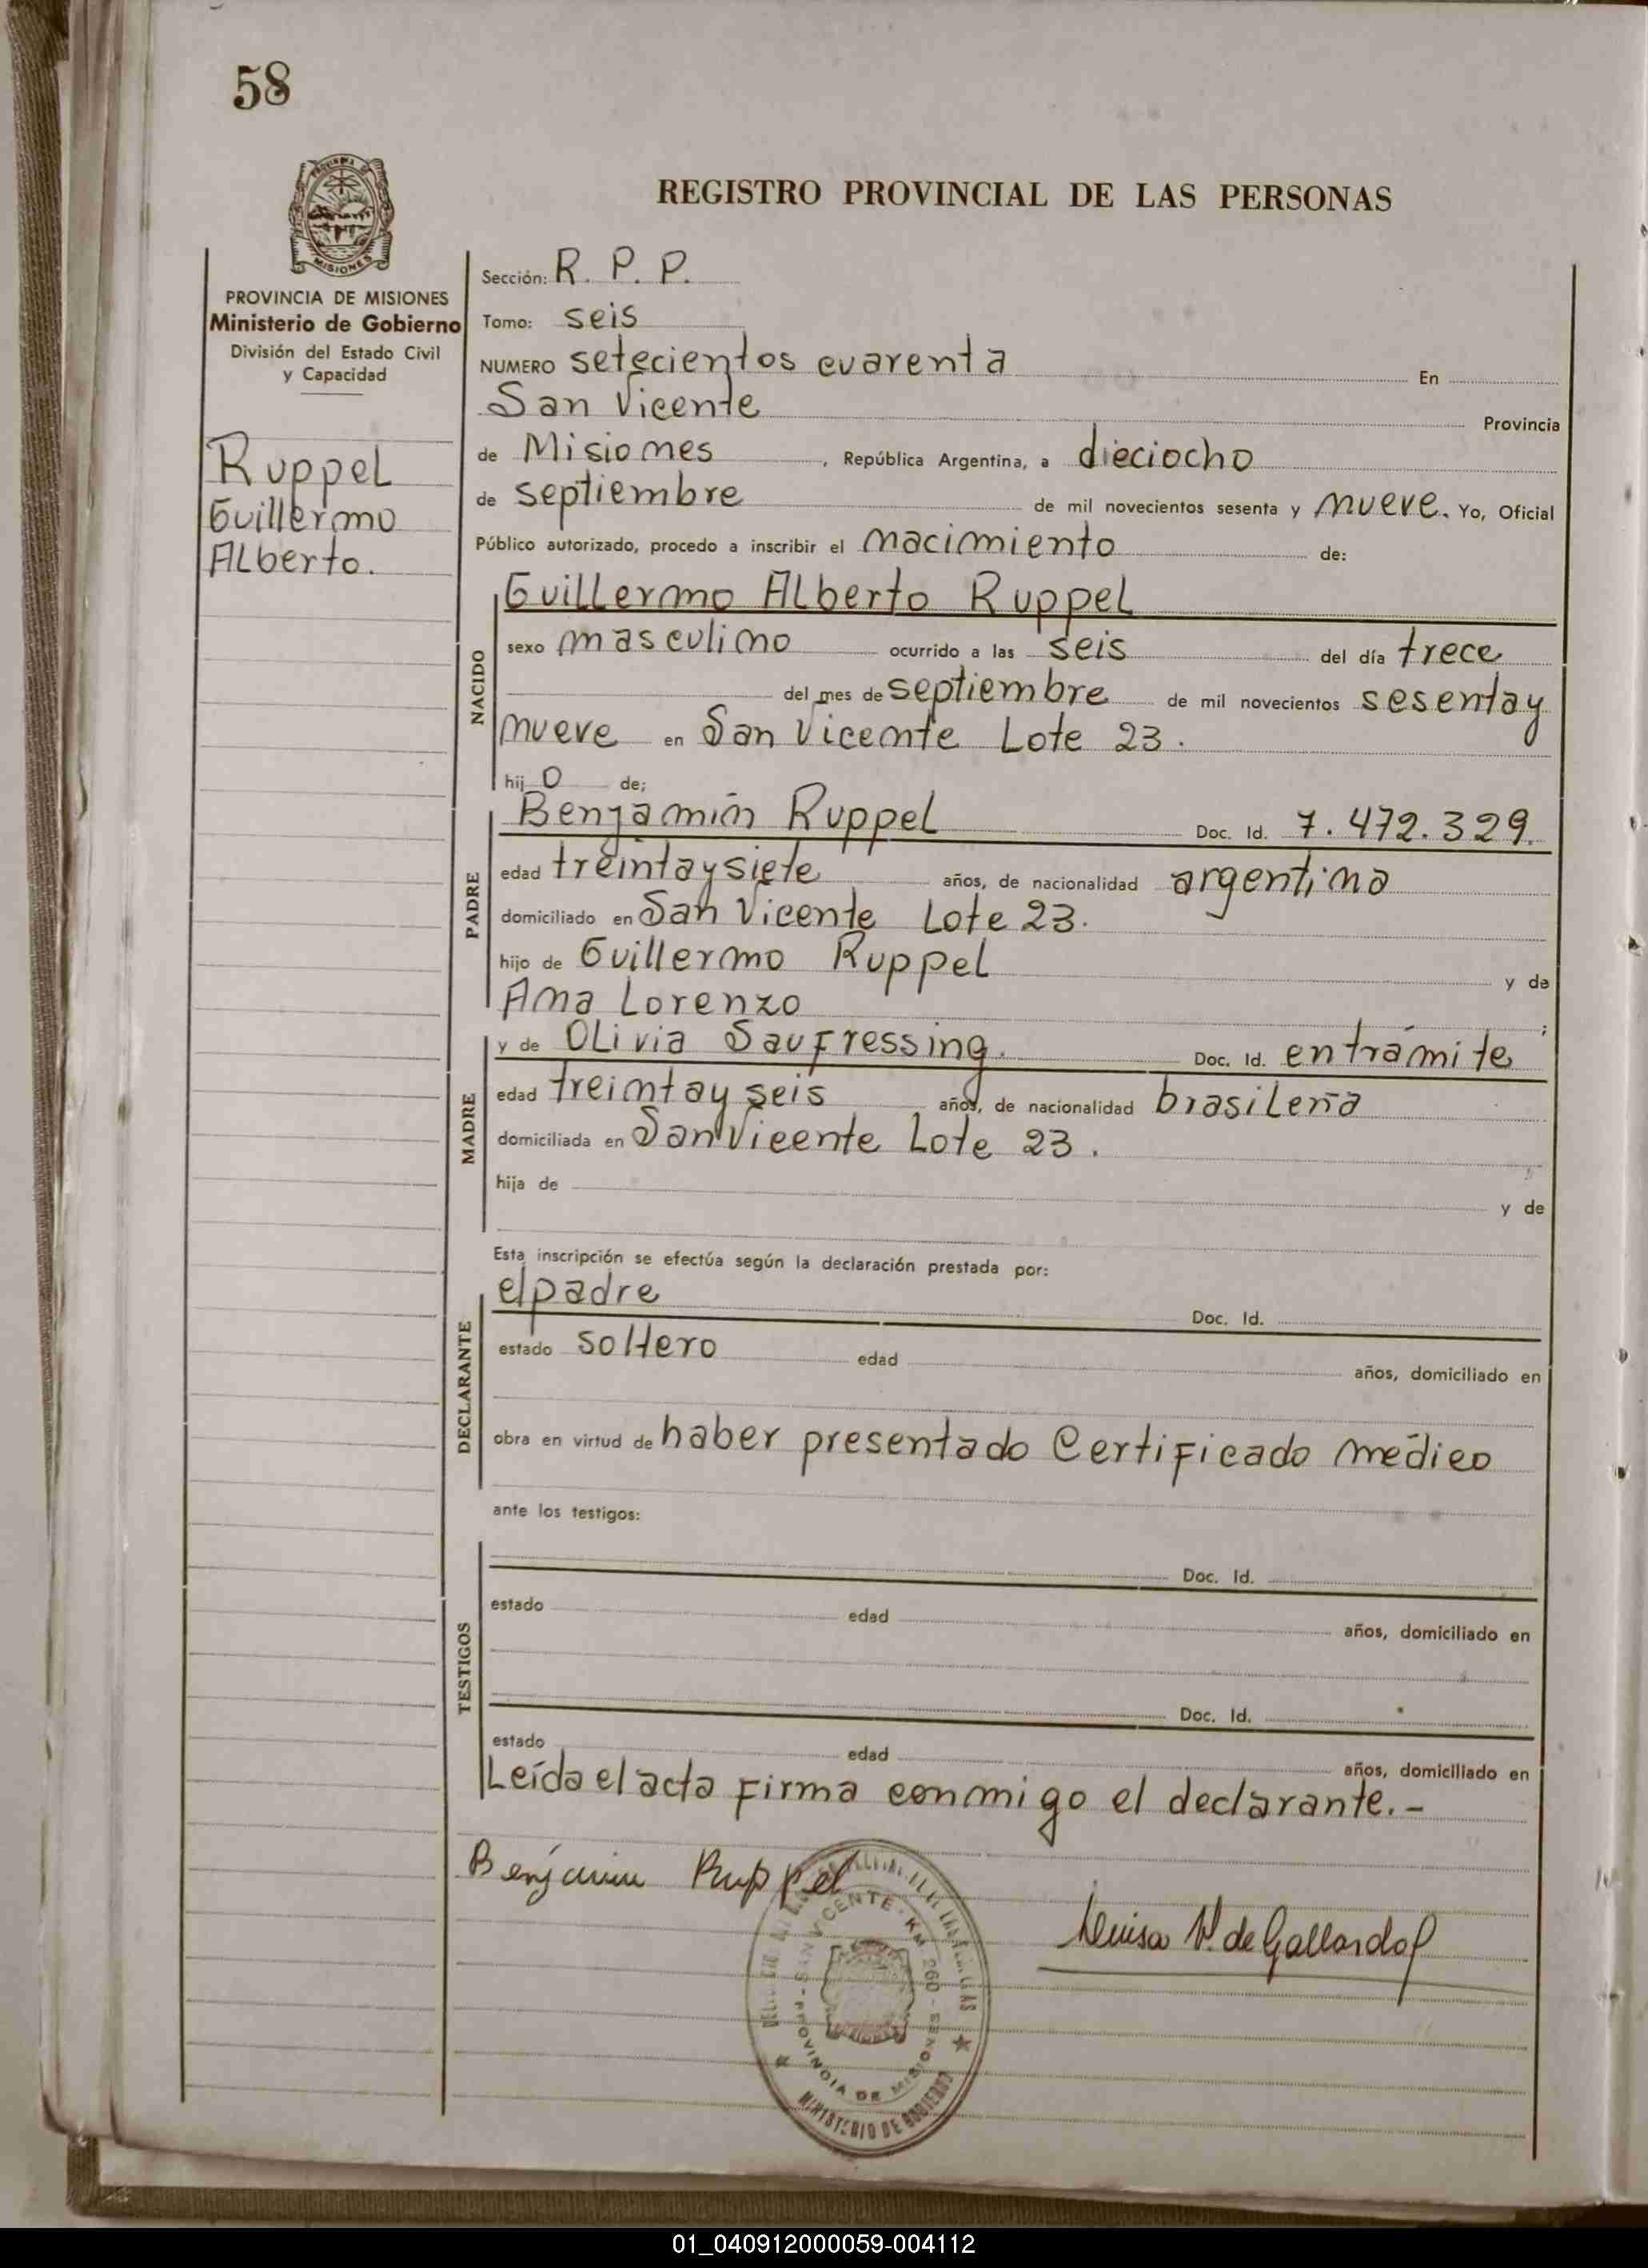 58
PROVINCIA DE MISIONES
Ministerio de Gobierno
División del Estado Civil
y Capacidad
Ruppel
Guillermo
Alberto.
REGISTRO PROVINCIAL DE LAS PERSONAS
Sección: R. P. P.
Tomo: seis
NUMERO setecientos cuarenta En
San Vicente Provincia
de Misiones, República Argentina, a dieciocho
de septiembre de mil novecientos sesenta y nueve. Yo, Oficial
Público autorizado, procedo a inscribir el nacimiento de:
NACIDO
Guillermo Alberto Ruppel
sexo masculino ocurrido a las seis del día trece
del mes de septiembre de mil novecientos sesentay
nueve en San Vicente Lote 23.
hijo de;
PADRE
Benjamín Ruppel Doc. Id. 7.472.329.
edad treintaysiete años, de nacionalidad argentina
domiciliado en San Vicente Lote 23.
hijo de Guillermo Ruppel y de
Ana Lorenzo ;
MADRE
y de Olivia Saufressing. Doc. Id. entrámite
edad treintay seis años, de nacionalidad brasileña
domiciliada en San Vicente Lote 23.
hija de y de
Esta inscripción se efectúa según la declaración prestada por:
DECLARANTE
el padre Doc. Id.
estado soltero edad años, domiciliado en
obra en virtud de haber presentado Certificado médico
ante los testigos:
TESTIGOS
Doc. Id.
estado edad años, domiciliado en
Doc. Id.
estado edad años, domiciliado en
Leída el acta firma conmigo el declarante.-
Benjamin Ruppel
de Gallardo
SAN VICENTE - KM 260 - PROVINCIA DE MISIONES
MINISTERIO DE GOBIERNO
01_040912000059-004112